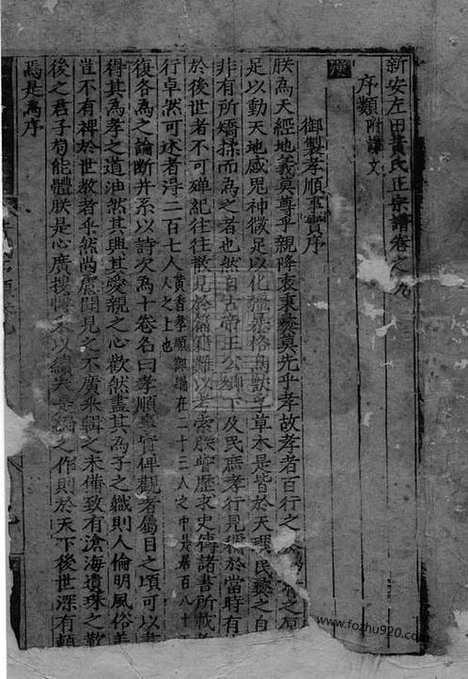 新安左田黃氏正宗譜卷之九
序類附譜文
御製孝順事實序
朕為天經地義莫尊乎親降衷秉彝莫先乎孝故孝者百行之
足以動天地感鬼神微足以化強暴格鳥獸 草木是皆於天理民彝之自
非有所矯揉而為之者也然自古帝王公卿下及民庶孝行見稱於當時有
於後世者不可殫紀往往散見於簡籍難以考索朕嘗歷求史傳諸書所載
行卓然可述者得二百七人黃香孝順與編在二十三人之中 居百八十 人之上也
復各為之論斷并系以詩次為十卷名曰孝順事實俾觀者屬目之頃可以
得其為孝之道油然其興其愛親之心歡然盡其為子之職則人倫明風俗美
豈不有裨於世教者乎然尚慮聞見之不廣采輯之未備致有滄海遺珠之歎
後之君子苟能體朕是心廣搜 采以續 是編之作則於天下後世深有賴
焉是為序
www.fozhu920.com